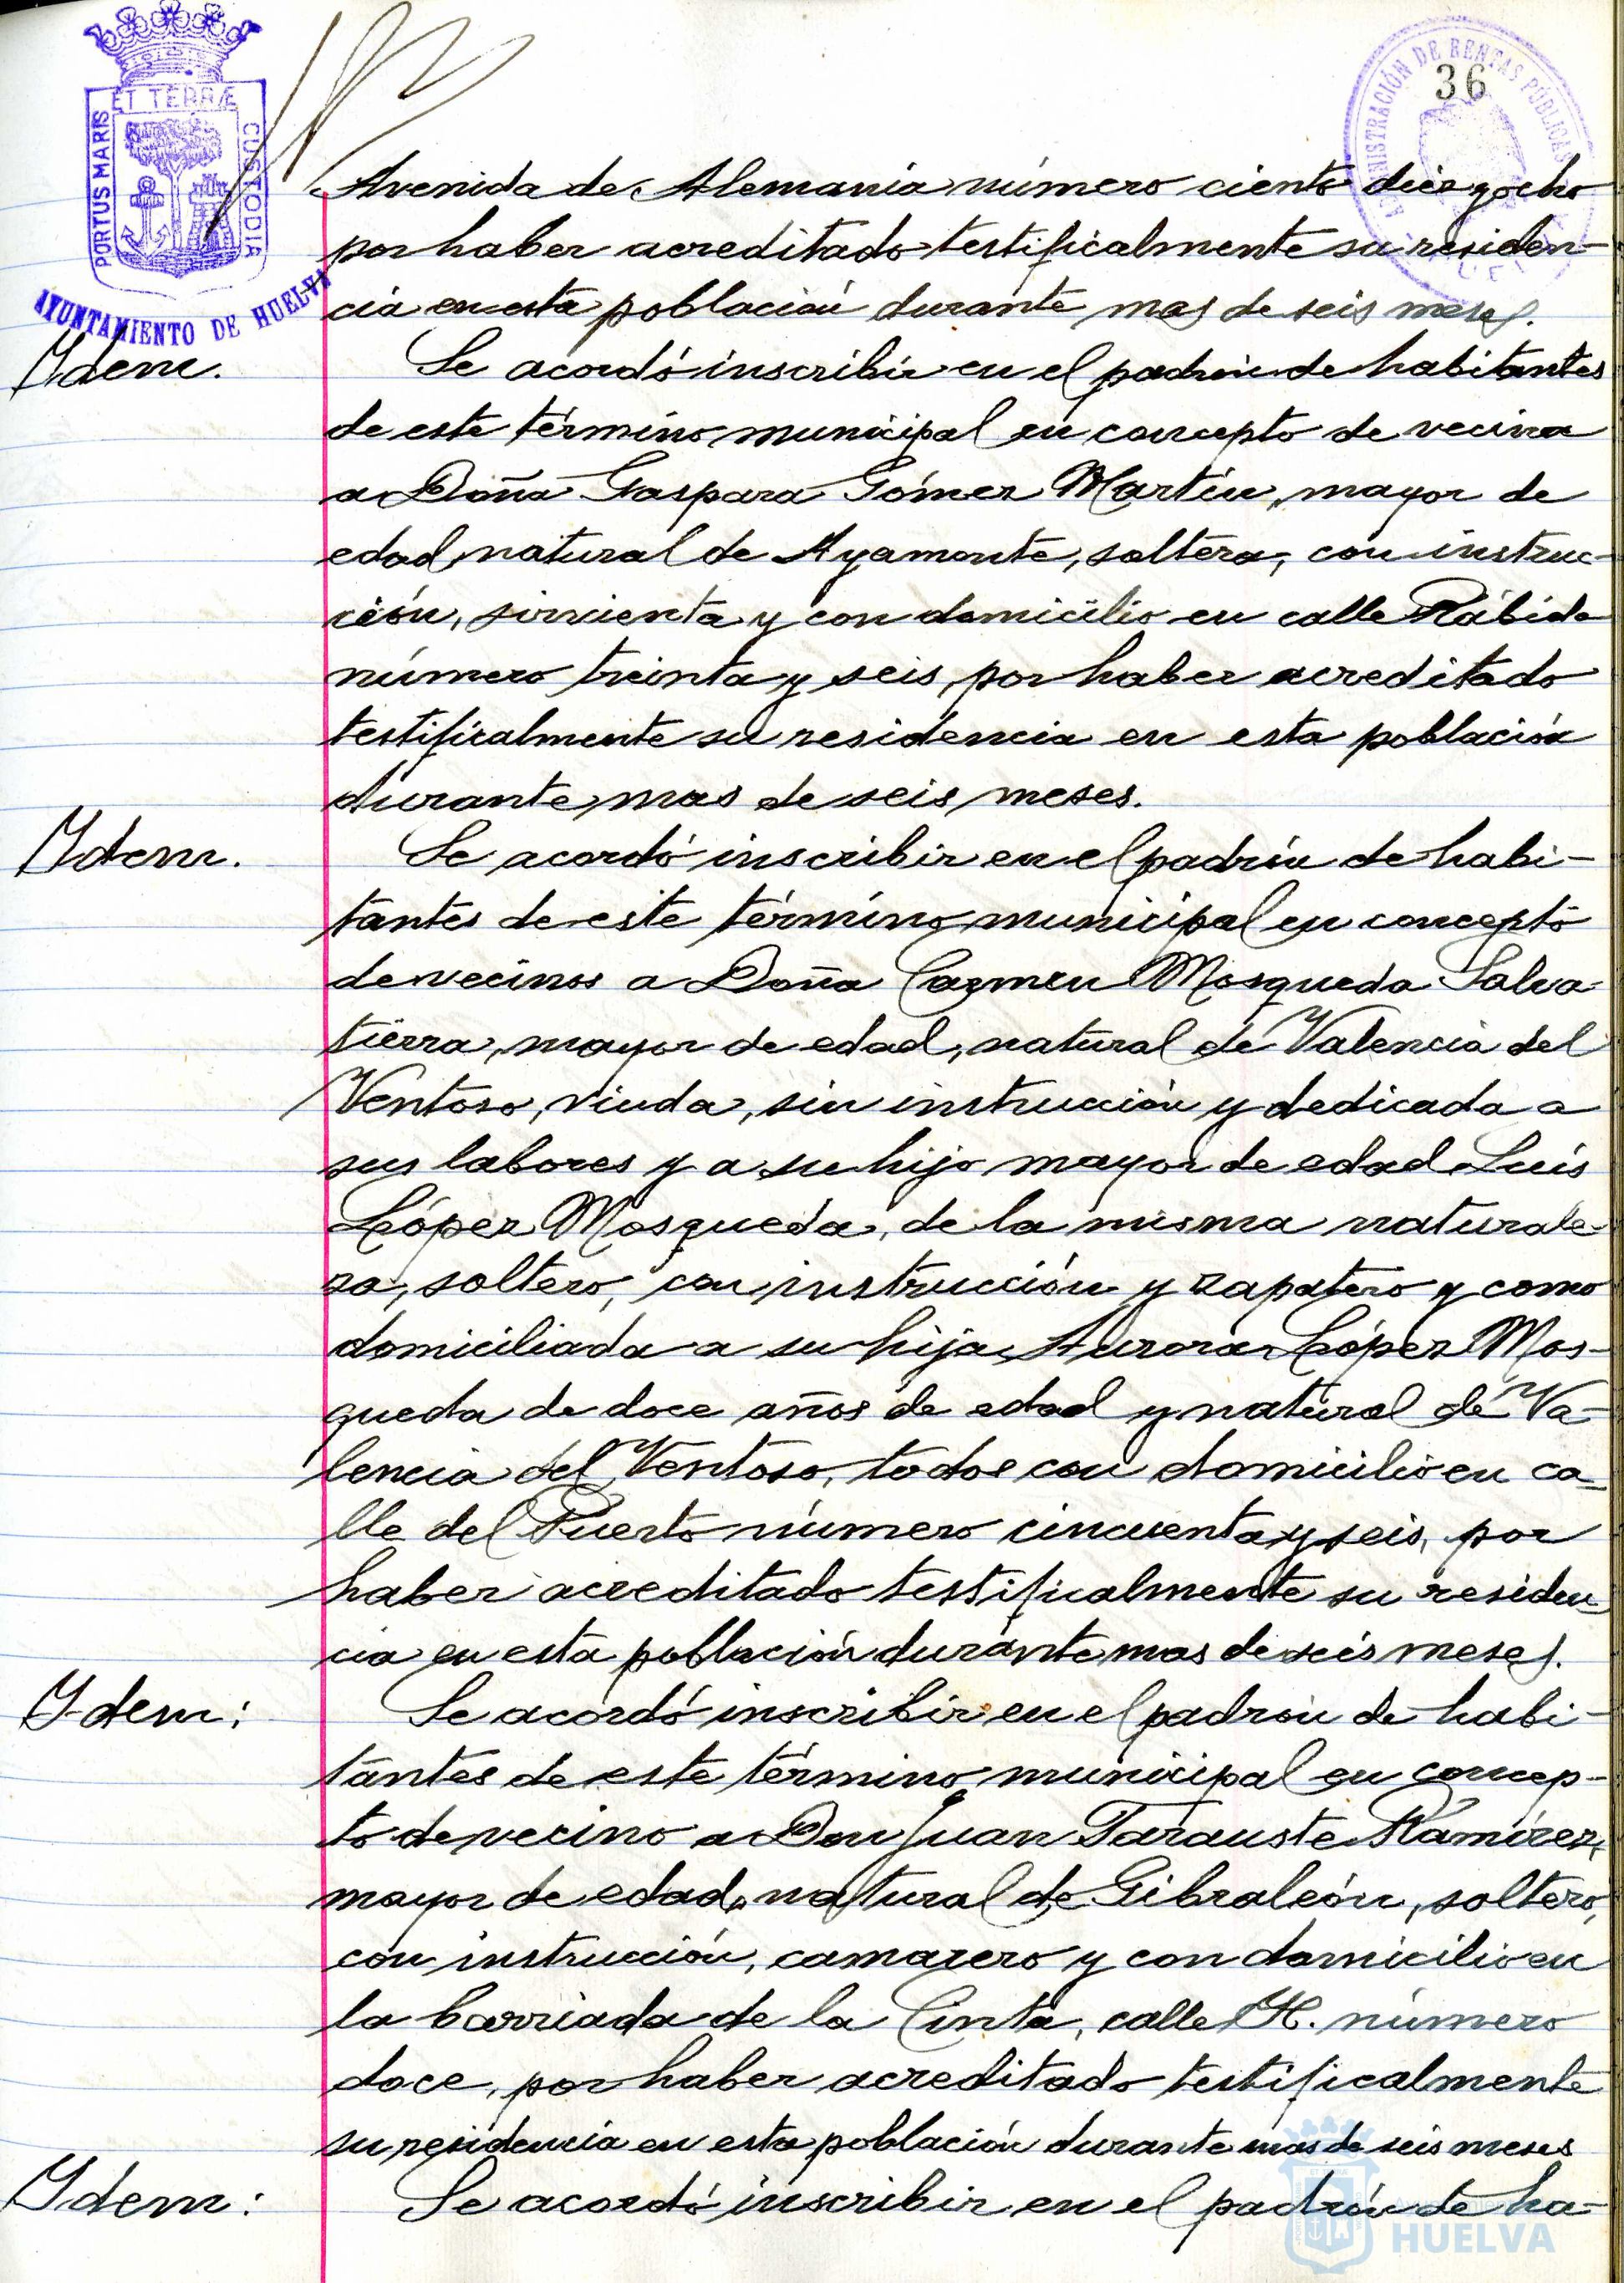 ET TERRÆ
PORTUS MARIS
CUSTODIA
AYUNTAMIENTO DE HUELVA
ADMINISTRACIÓN DE RENTAS PÚBLICAS
36
Avenida de Alemania número ciento diez y ocho
por haber acreditado testificalmente su residen-
cia en esta población durante mas de seis meses.
Idem.
Se acordó inscribir en el padrón de habitantes
de este término municipal en concepto de vecina
a Doña Gaspara Gómez Martín, mayor de
edad, natural de Ayamonte, soltera, con instruc-
ción, sirvienta y con domicilio en calle Rábida
número treinta y seis, por haber acreditado
testificalmente su residencia en esta población
durante mas de seis meses.
Idem.
Se acordó inscribir en el padrón de habi-
tantes de este término municipal en concepto
de vecinos a Doña Carmen Mosqueda Salva-
tierra, mayor de edad, natural de Valencia del
Ventoso, viuda, sin instrucción y dedicada a
sus labores y a su hijo mayor de edad Luís
López Mosqueda, de la misma naturale-
za, soltero, con instrucción y zapatero y como
domiciliada a su hija Aurora López Mos-
queda de doce años de edad y natural de Va-
lencia del Ventoso, todos con domicilio en ca-
lle del Puerto número cincuenta y seis, por
haber acreditado testificalmente su residen-
cia en esta población durante mas de seis meses.
Idem:
Se acordó inscribir en el padrón de habi-
tantes de este término municipal en concep-
to de vecino a Don Juan Tarauste Ramírez,
mayor de edad, natural de Gibraleón, soltero,
con instrucción, camarero y con domicilio en
la barriada de la Cinta, calle H. número
doce, por haber acreditado testificalmente
su residencia en esta población durante mas de seis meses
Idem:
Se acordó inscribir en el padrón de ha-
HUELVA